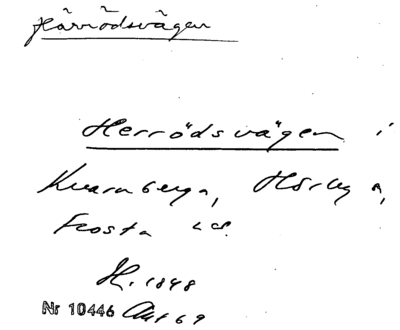 Härrödsvägen
Herrödsvägen i
Kvarnberga, Hörby s,
Frosta hd.
H. 1848
Nr 10446 Akt 69